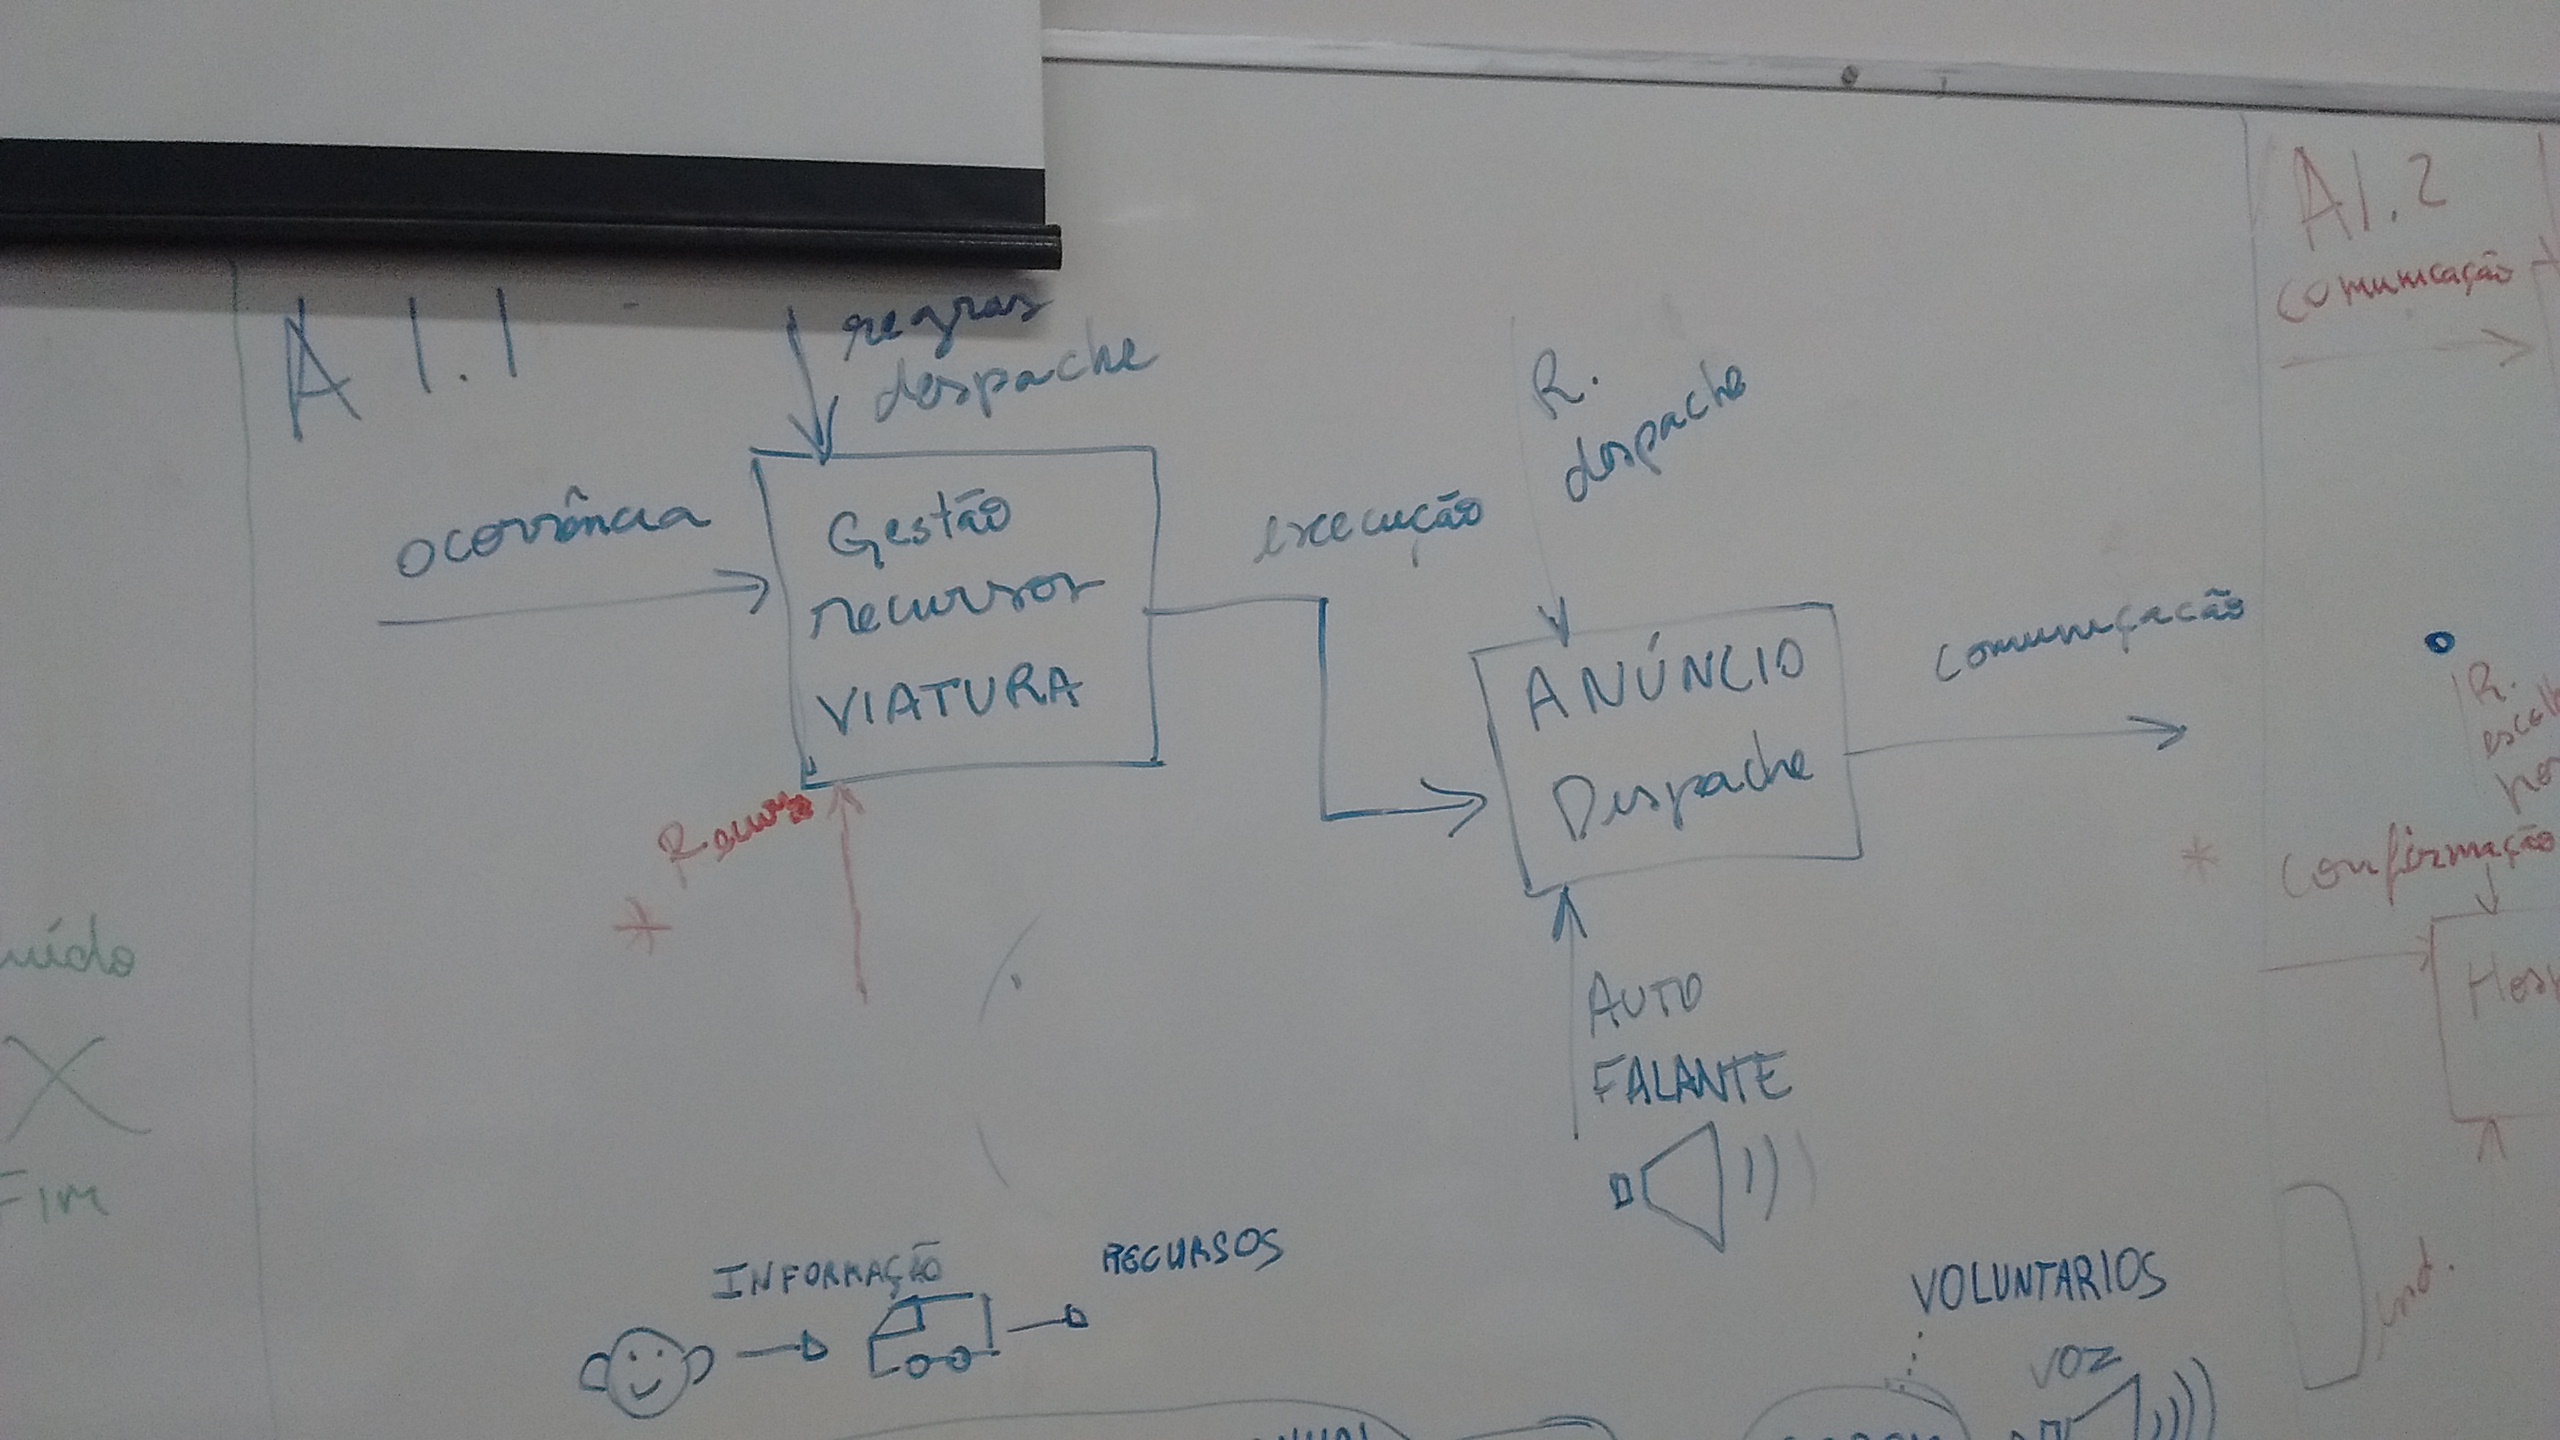 A 1.1
regras
despache
ocorrência
Gestão
recursos
VIATURA
execução
R.
despache
ANÚNCIO
Despache
comunicação
* Recurso
AUTO
FALANTE
INFORMAÇÃO
RECURSOS
VOLUNTARIOS
VOZ
A1.2
comunicação
R.
* confirmação
FIM